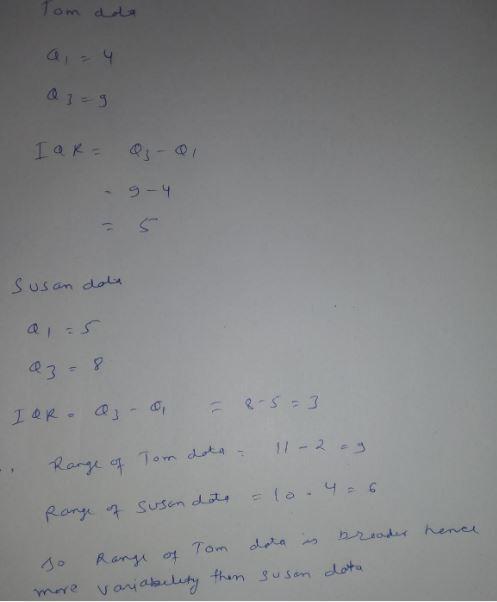 Tom data
Q1 = 4
Q3 = 9
IQR = Q3 - Q1
= 9-4
= 5
Susan data
Q1 = 5
Q3 = 8
IQR = Q3 - Q1 = 8-5 = 3
Range of Tom data = 11 - 2 = 9
Range of Susan data = 10 - 4 = 6
so Range of Tom data is broader hence
more variability then Susan data